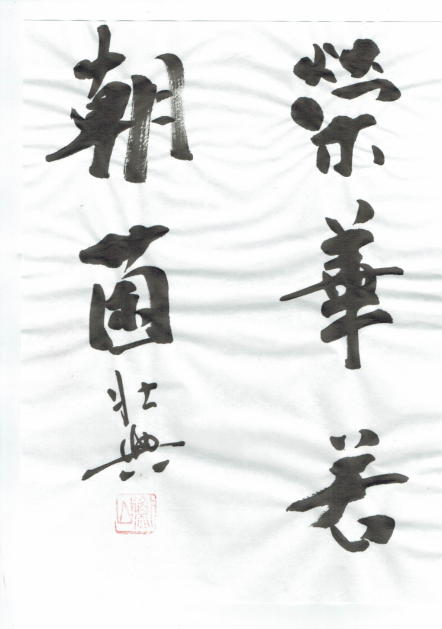 榮華若
朝菌 壮典